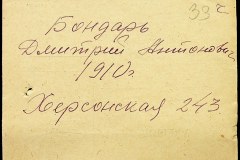 39
Бондарь
Дмитрий Антонович
1910г.
Херсонская 243